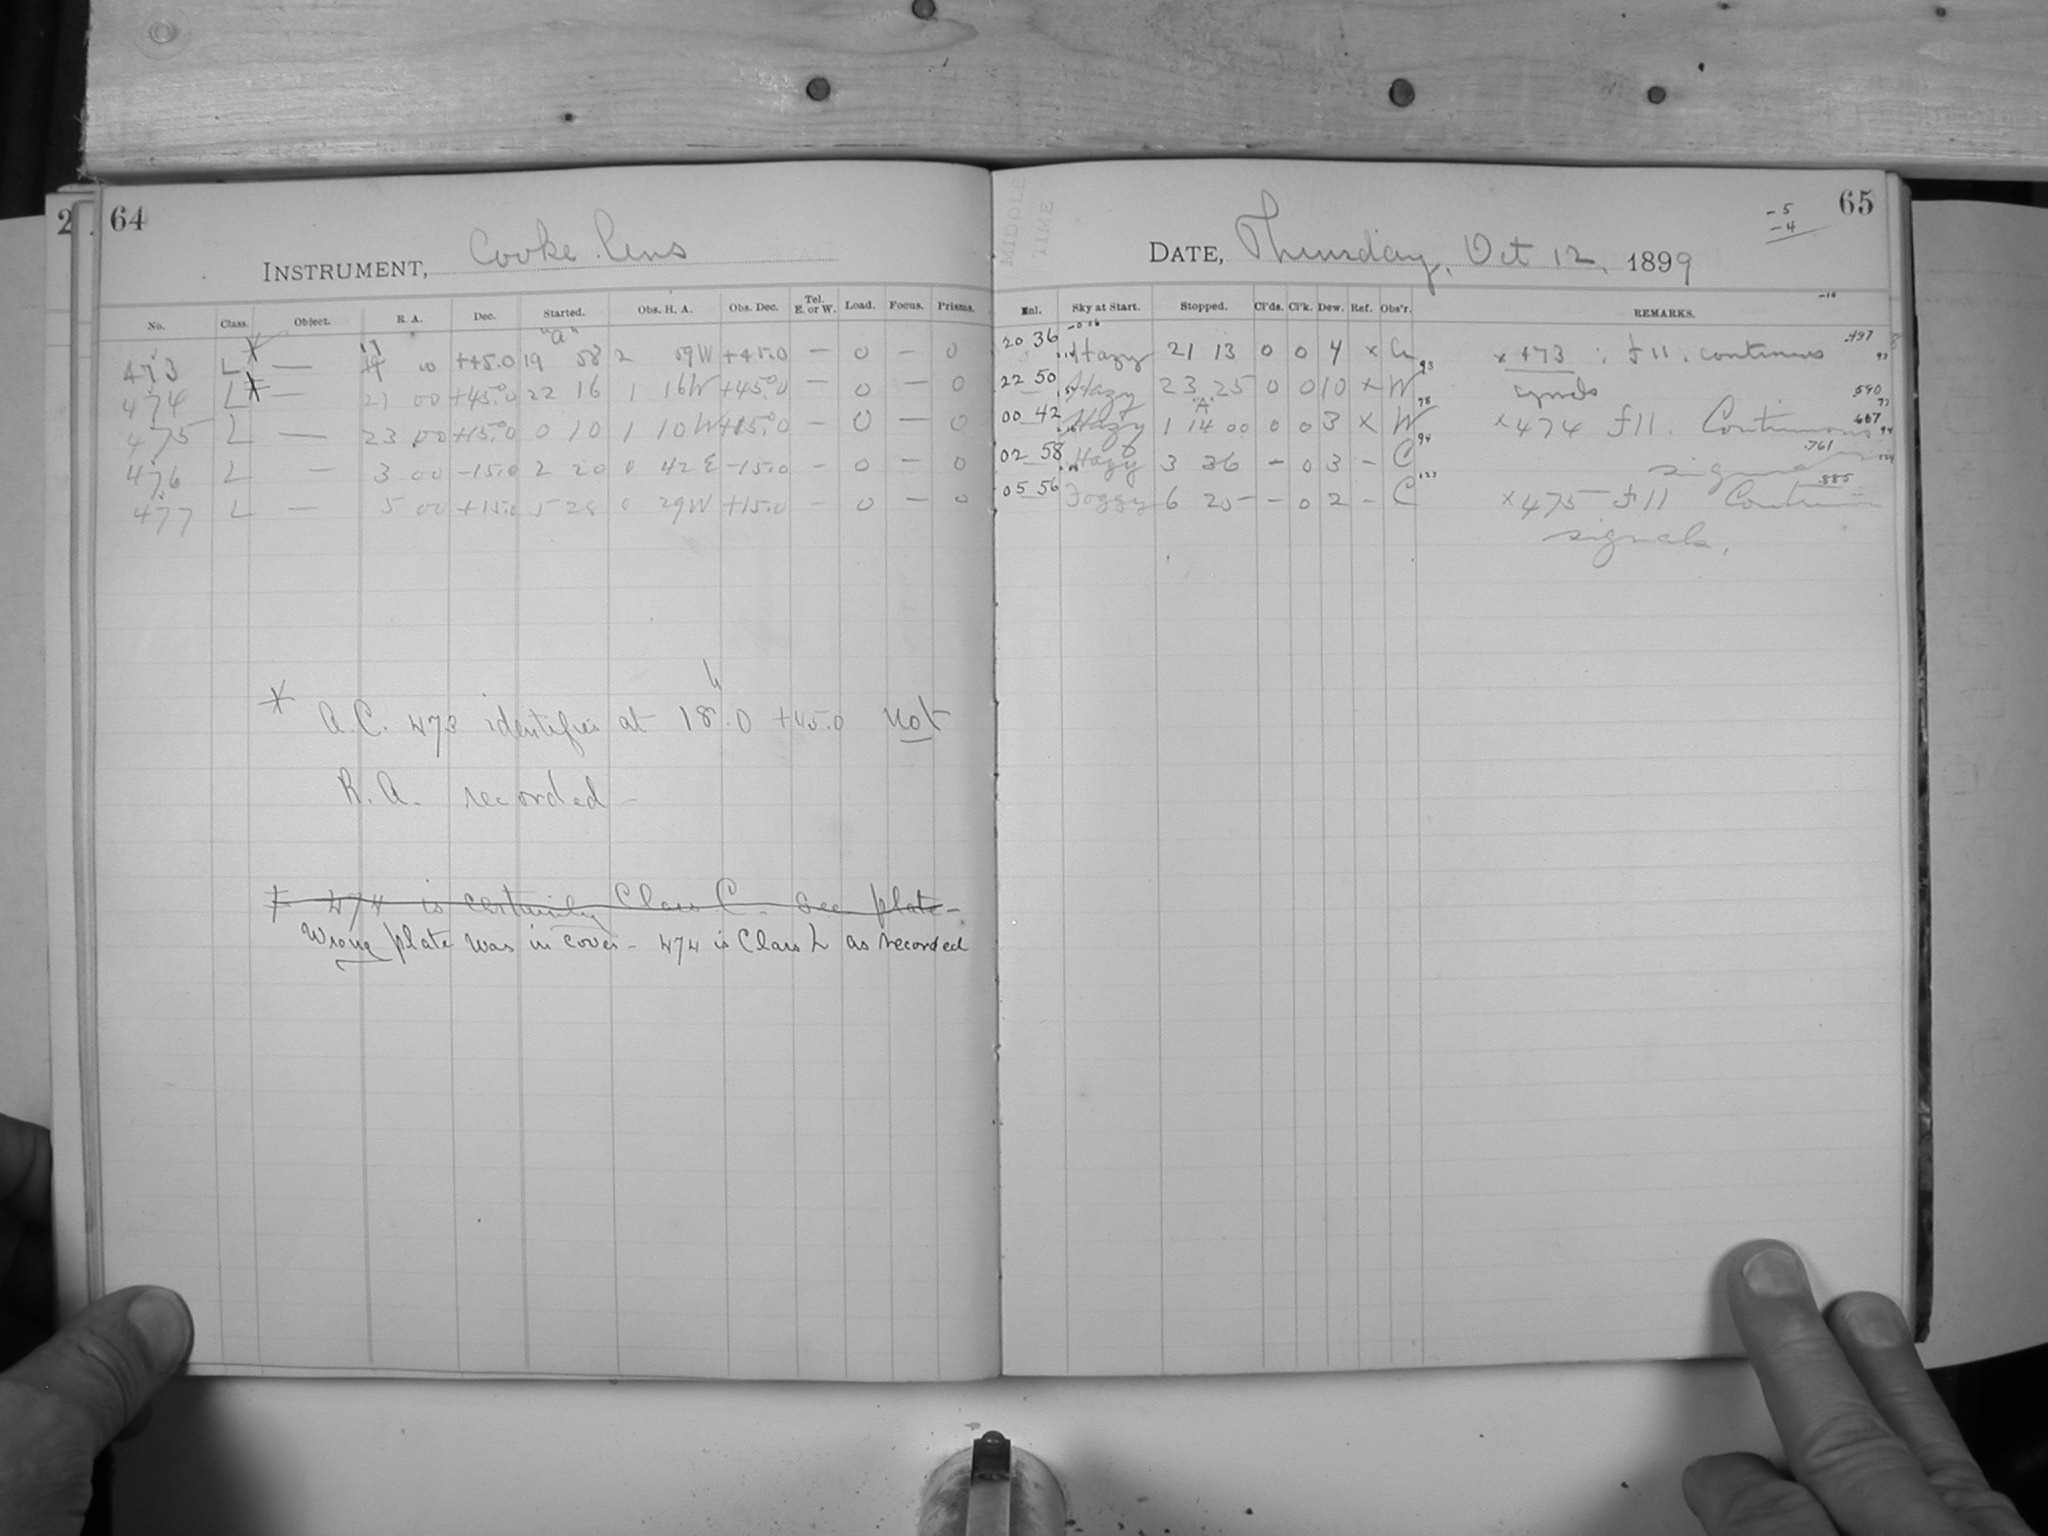 64
INSTRUMENT, Cooke lens
No. Class. Object. R. A. Dec. Started. Obs. H. A. Obs. Dec. Tel. E. or W. Load. Focus. Prisms.
"a"
473 L * — 17 00 +45.0 19 58 2 59W +45.0 — 0 — 0
474 L * — 21 00 +45.0 22 16 1 16W +45.0 — 0 — 0
475 L — 23 00 +15.0 0 10 1 10W +15.0 — 0 — 0
476 L — 3 00 -15.0 2 20 0 42E -15.0 — 0 — 0
477 L — 5 00 +15.0 5 28 0 29W +15.0 — 0 — 0
* A.C. 473 identifies at 18h.0 +45.0 not
R.A. recorded -
474 is certainly Class C. See plate -
Wrong plate was in cover - 474 is Class L as recorded
MIDDLE
TIME
65
-5
-4
DATE, Thursday, Oct 12, 1899
Sky at Start. Stopped. Cl'ds. Cl'k. Dew. Ref. Obs'r. REMARKS.
-16
20 36 Hazy 21 13 0 0 4 x x 473 : f 11. continuous .497
22 50 Hazy 23 25 0 0 10 x W 93 signals .590
"A"
00 42 Hazy 1 14 00 0 0 3 x W 98 x 474 f 11. Continuous
02 58 Hazy 3 36 - 0 3 - C 94 signals .761
05 56 Foggy 6 25 - 0 2 - C x 475 f 11 .885
signals.